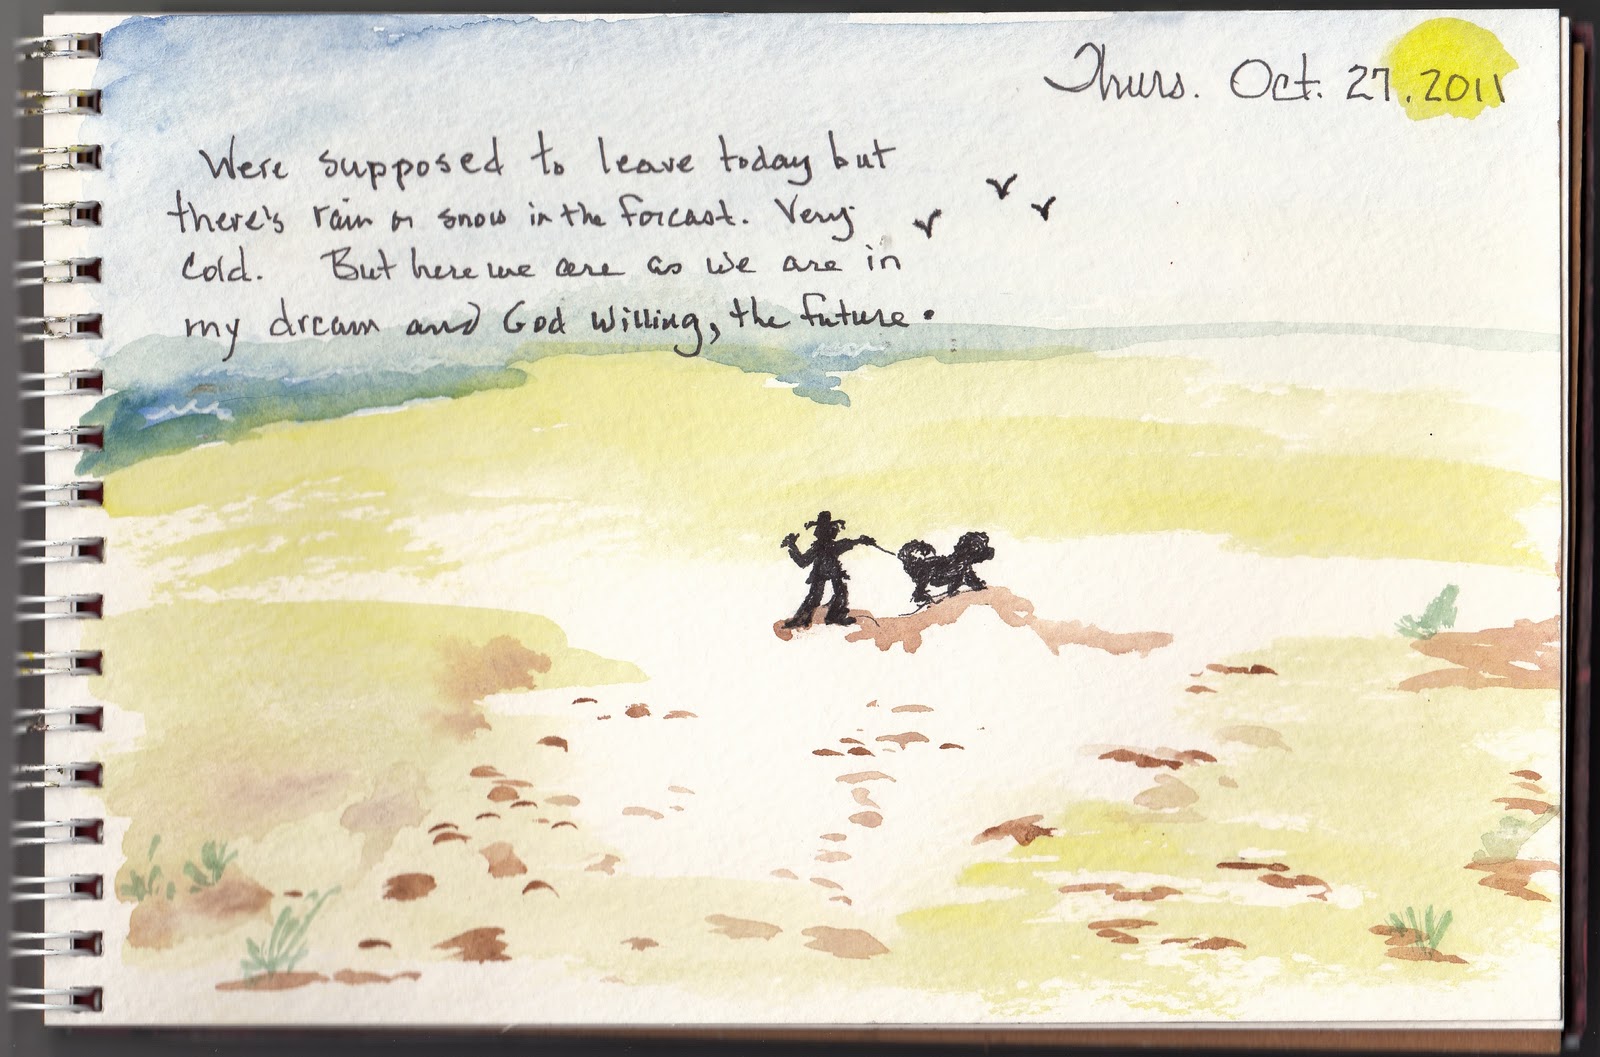 Thurs. Oct. 27. 2011
Were supposed to leave today but
there's rain or snow in the forcast. Very
Cold. But here we are as we are in
my dream and God Willing, the future.